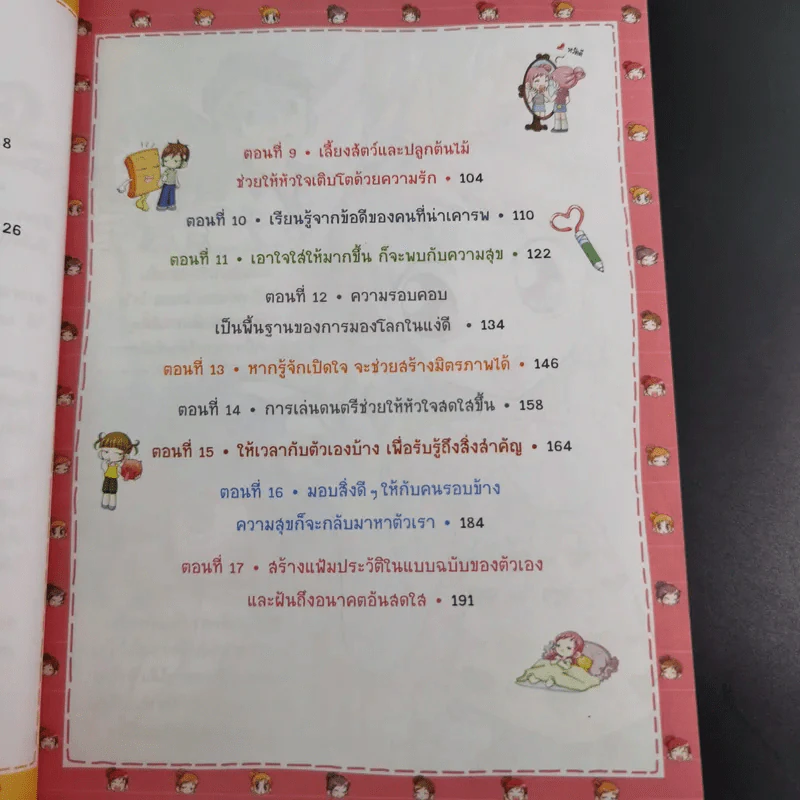 8
26
หวัดดี
ตอนที่ 9 • เลี้ยงสัตว์และปลูกต้นไม้
ช่วยให้หัวใจเติบโตด้วยความรัก • 104
ตอนที่ 10 • เรียนรู้จากข้อดีของคนที่น่าเคารพ • 110
ตอนที่ 11 • เอาใจใส่ให้มากขึ้น ก็จะพบกับความสุข • 122
ตอนที่ 12 • ความรอบคอบ
เป็นพื้นฐานของการมองโลกในแง่ดี • 134
ตอนที่ 13 • หากรู้จักเปิดใจ จะช่วยสร้างมิตรภาพได้ • 146
ตอนที่ 14 • การเล่นดนตรีช่วยให้หัวใจสดใสขึ้น • 158
ตอนที่ 15 • ให้เวลากับตัวเองบ้าง เพื่อรับรู้ถึงสิ่งสำคัญ • 164
ตอนที่ 16 • มอบสิ่งดีๆ ให้กับคนรอบข้าง
ความสุขก็จะกลับมาหาตัวเรา • 184
ตอนที่ 17 • สร้างแฟ้มประวัติในแบบฉบับของตัวเอง
และฝันถึงอนาคตอันสดใส • 191